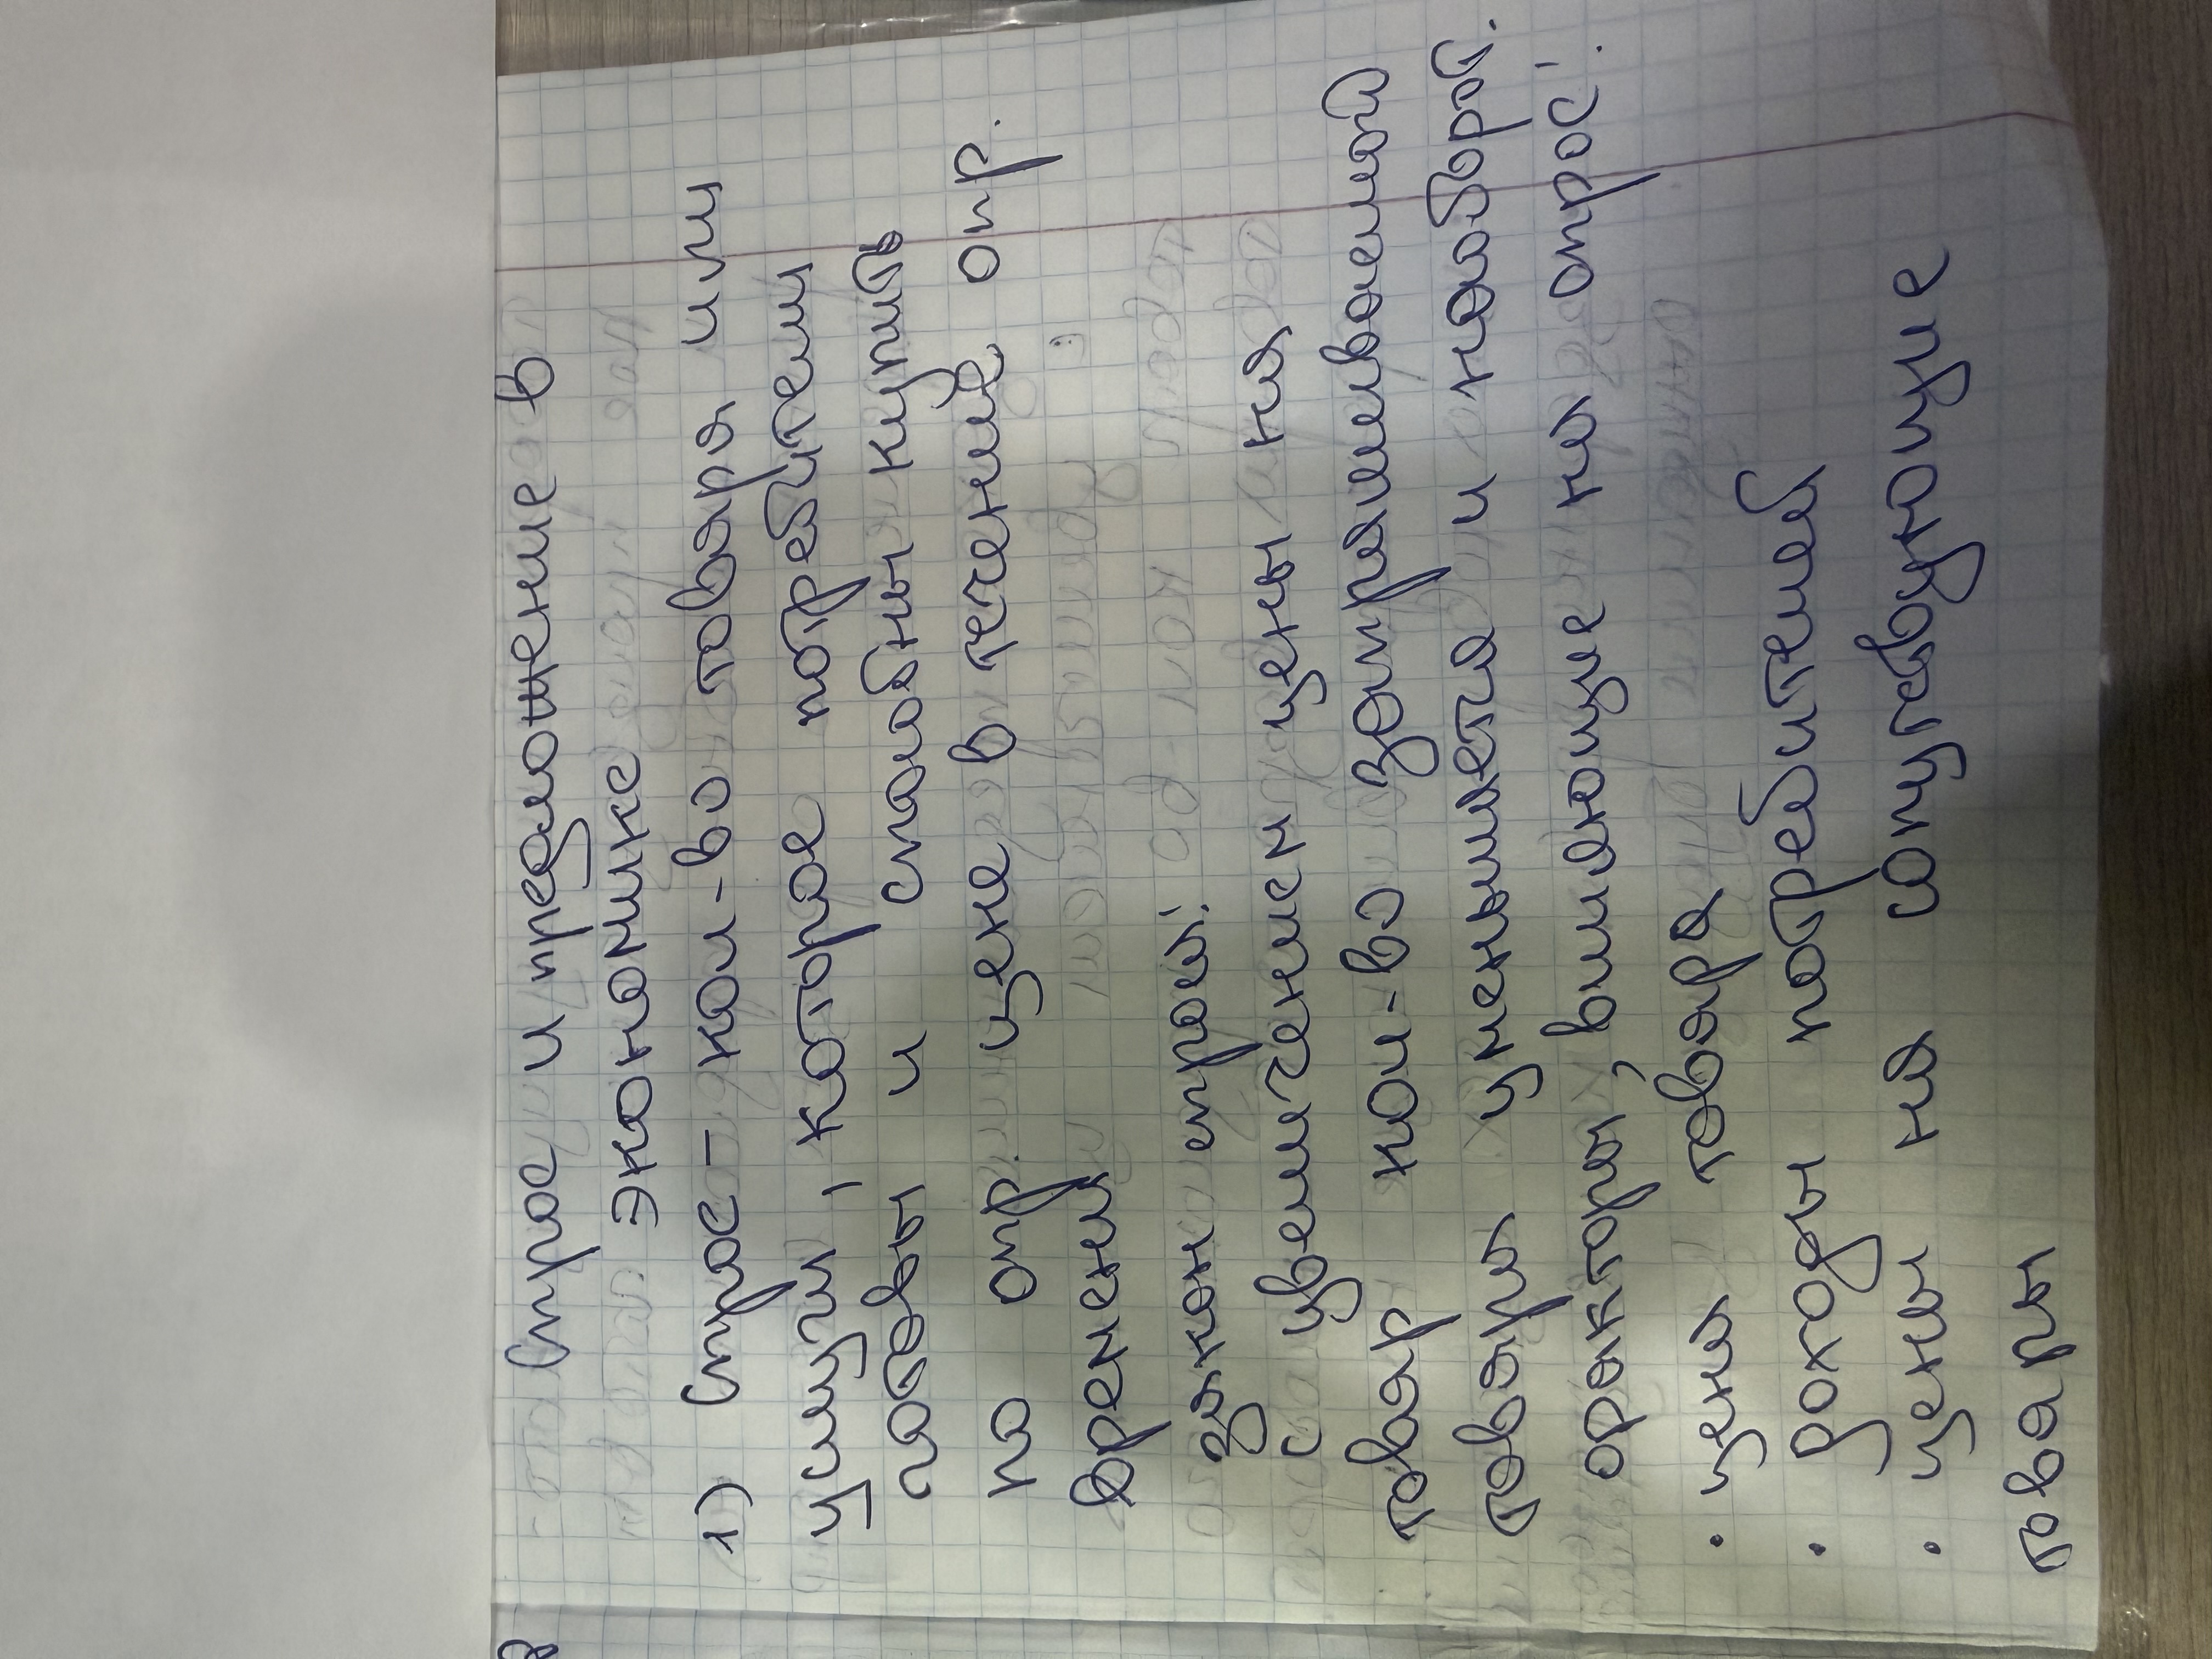 Спрос и предложение в
экономике
1) Спрос - кол-во товара или
услуги, которое потребители
готовы и способны купить
по опр. цене в течение опр.
времени
закон спроса:
с увеличением цены на
товар кол-во запрашиваемой
товары уменьшается и наоборот.
факторы, влияющие на спрос:
· цена товара
· доходы потребителей
· цены на сопутствующие
товары